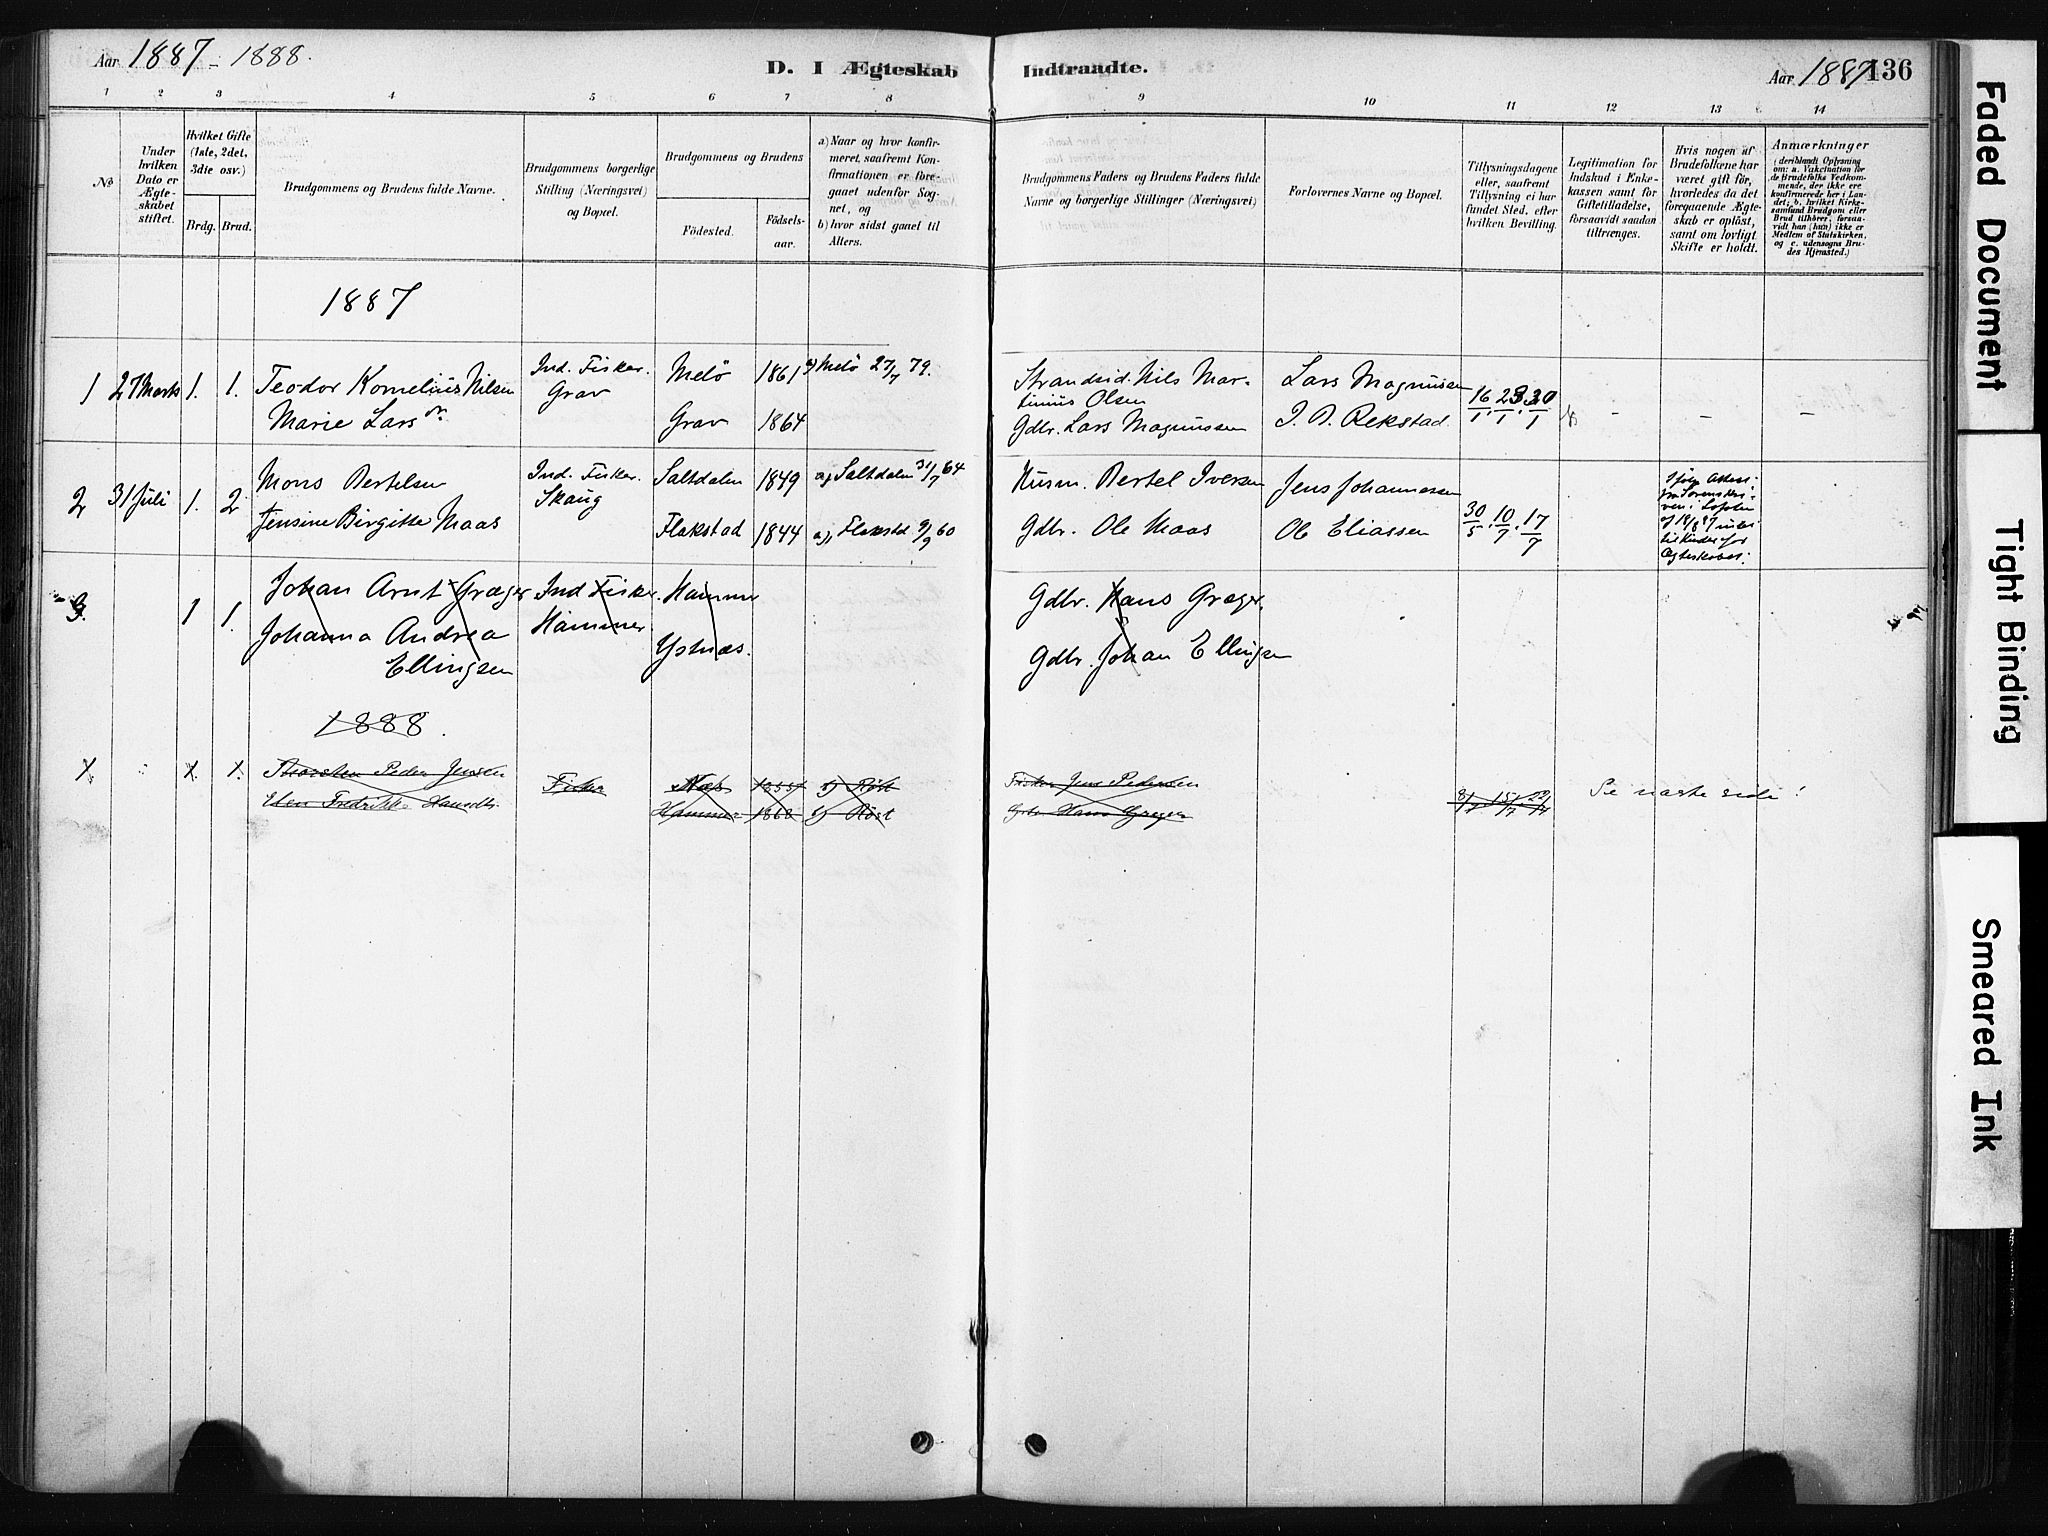 Aar 1887 - 1888.
D. I Ægteskab Indtraadte.
Aar 1887 136
1 2 3 4 5 6 7 8 9 10 11 12 13 14
No
Under hvilken Dato er Ægteskabet stiftet.
Hvilket Gifte (1ste, 2det, 3die osv.)
Brdg. Brud.
Brudgommens og Brudens fulde Navne.
Brudgommens borgerlige Stilling (Næringsvei) og Bopæl.
Brudgommens og Brudens
Födested. Födselsaar.
a) Naar og hvor konfirmeret, saafremt Konfirmationen er foregaaet udenfor Sognet, og
b) hvor sidst gaaet til Alters.
Brudgommens Faders og Brudens Faders fulde Navne og borgerlige Stillinger (Næringsvei)
Forlovernes Navne og Bopæl.
Tillysningsdagene eller, saafremt Tillysning ei har fundet Sted, efter hvilken Bevilling.
Legitimation for Indskud i Enkekassen samt for Giftetilladelse, forsaavidt saadan tiltrænges.
Hvis nogen af Brudefolkene har været gift för, hvorledes da det foregaaende Ægteskab er oplöst, samt om lovligt Skifte er holdt.
Anmærkninger
(deriblandt Oplysning om: a. Vakcination for de Brudefolks Vedkommende, der ikke ere konfirmerede her i Landet; b. hvilket Kirkesamfund Brudgom eller Brud tilhörer, forsaavidt han (hun) ikke er Medlem af Statskirken, og c. udensogns Brudes Hjemsted.)
1887
1 27 Marts 1. 1. Teodor Kornelius Nilsen Ind. Fisker. Grav Melö 1861 a) Melö 27/7 79. Strandsid. Nils Martinius Olsen Lars Magnussen 16/1. 23/1. 30/1 - - -
Marie Larsdr. Grav 1864 Gdbr. Lars Magnussen J. D. Rekstad
2 31 Juli 1. 2 Mons Bertelsen Ind. Fisker. Skaug Saltdalen 1849 a) Saltdalen 31/7 64 Husm. Bertel Iversen Jens Johannessen 30/5. 10/7. 17/7
Jensine Birgitte Maas Flakstad 1844 a), Flakstad 9/9 60 Gdbr. Ole Maas Ole Eliassen
3. 1 1. Johan Arnt Græger Ind Fisker. Hammer Hammer Gdbr. Hans Græger.
Johanna Andrea Ellingsen Ystnæs. Gdbr. Johan Ellingsen
1888.
1. 1. 1. Thorsten Peder Jensen Fisker Næs b) Röst Fisker Jens Pedersen 8/7 15/7 22/7 Se næste side!
Elen Fredrikke Hansdtr. Hammer 1868 b) Röst Gbr Hans Græger
Faded Document
Tight Binding
Smeared Ink